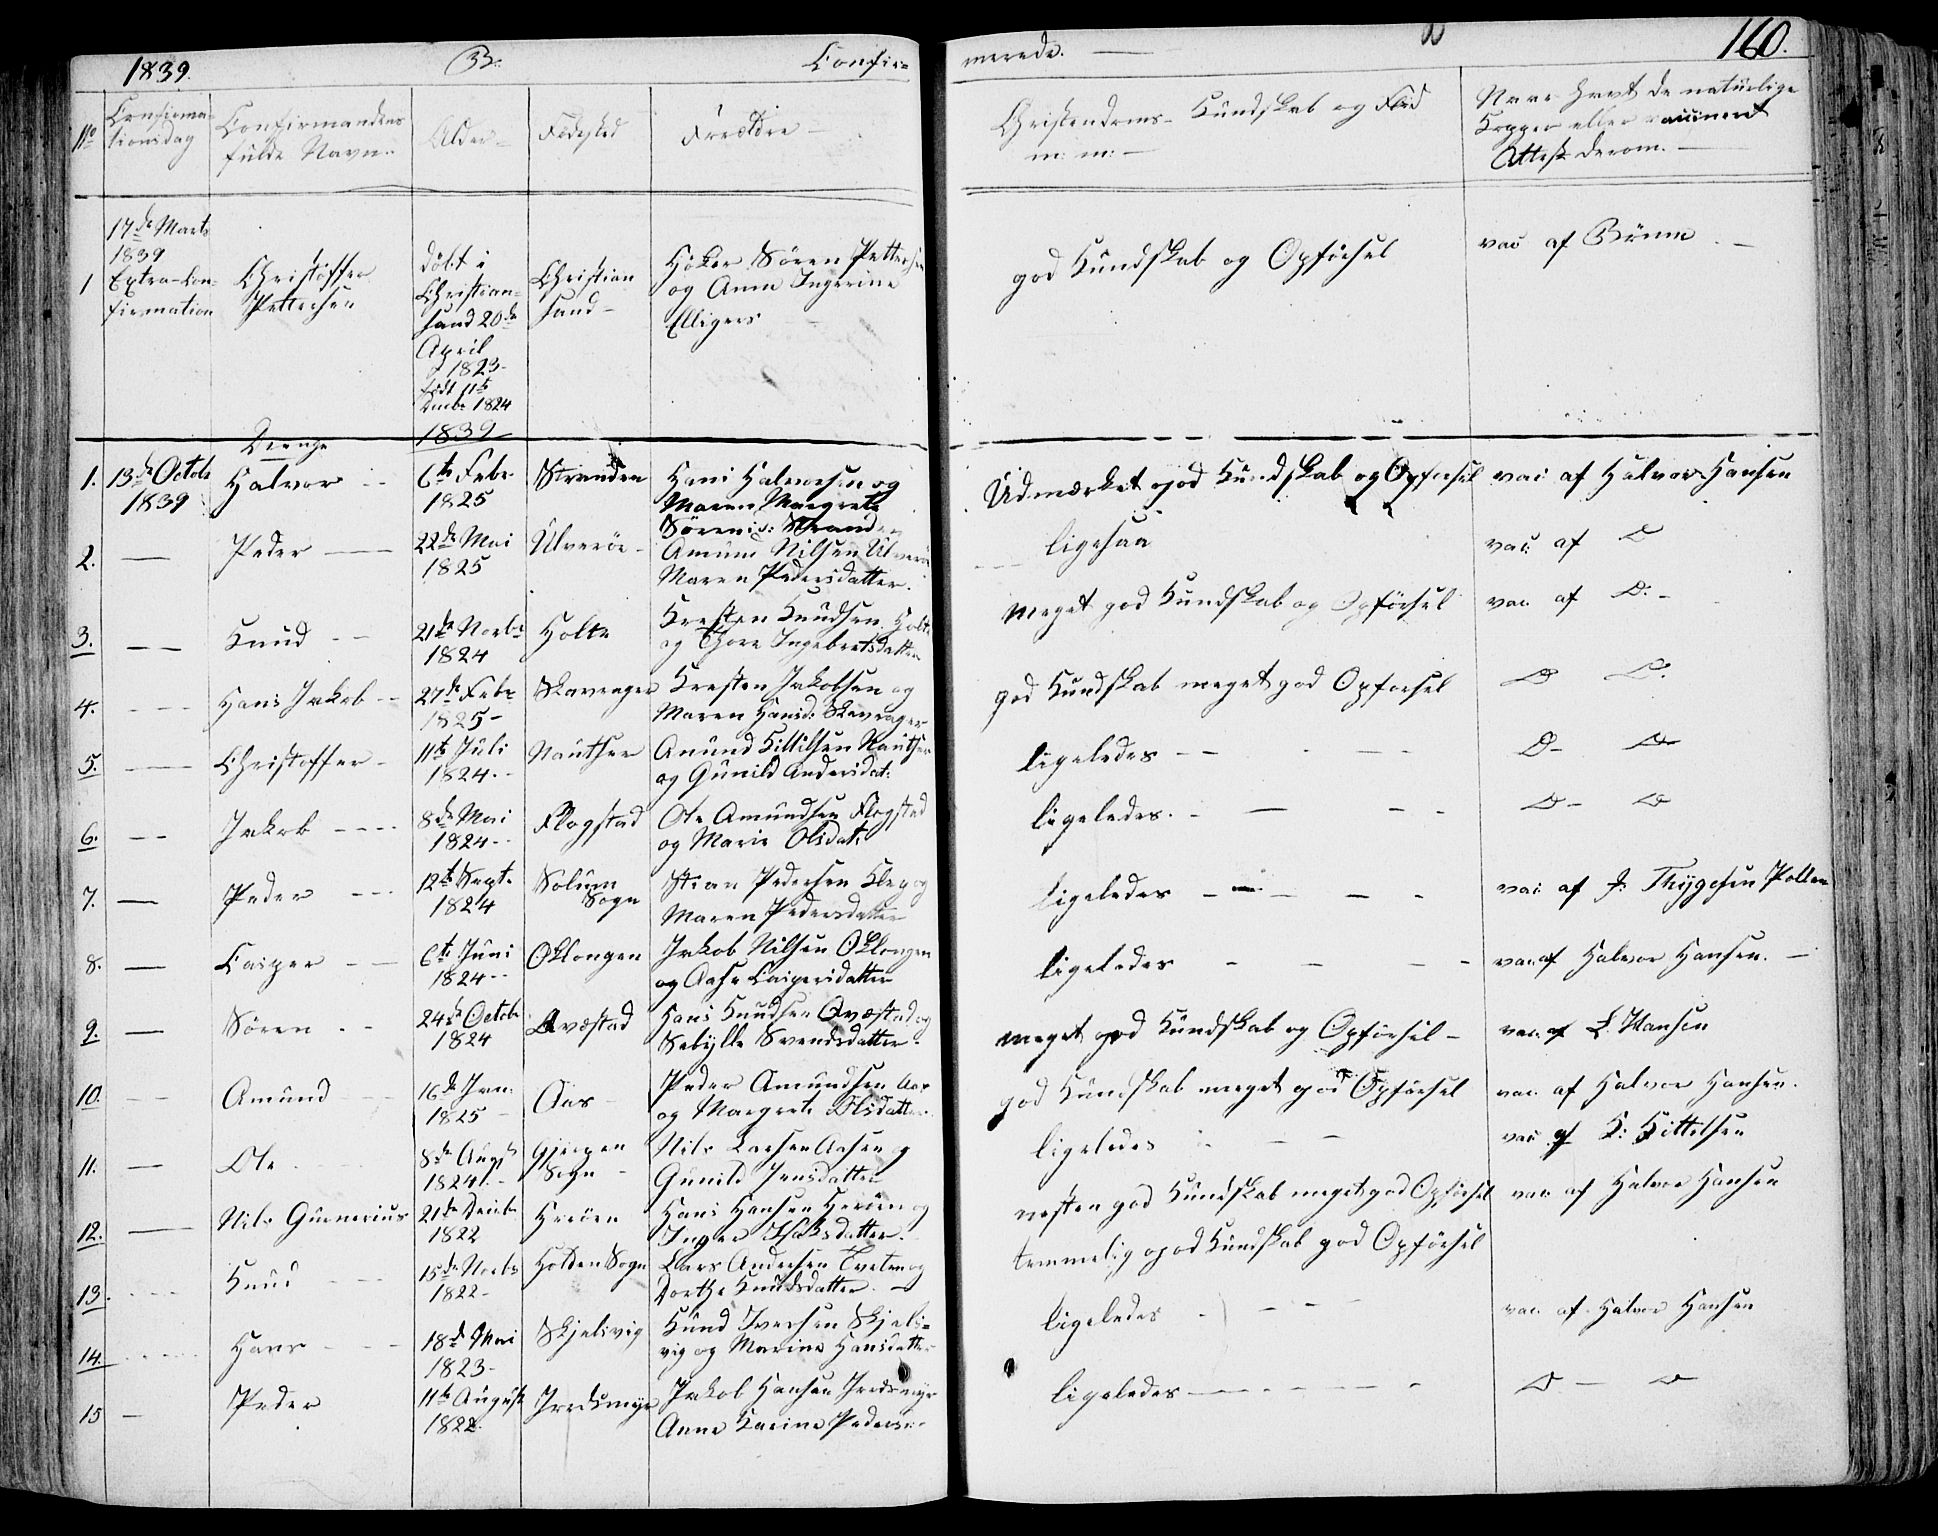 1839. B. Confir=
merede. 160.
No Confirma=
tionsdag
Confirmandens
fulde Navn.
Alder
Fødested
Forældre
Christendoms- Kundskab og Flid
m: m:
Naar havt de naturlige
Kopper eller vaccineret
Attest derom.
1 17de Marts
1839
Extra-Con=
firmation
Christoffer
Pettersen
døbt i
Christian=
sand 20de
April
1823
født 11te
Decbr 1824
Christian
sand
Høker Søren Pettersen
og Anne Ingerine
Elligers
god Kundskab og Opførsel
vac af Brünn
Drenge
1839
1. 13de Octob
1839
Halvor
6te Febr
1825
Stranden
Hans Halvorsen og
Maren Margrete
Sørensd: Stranden
Udmærket god Kundskab og Opførsel
vac af Halvor Hansen
2. Peder
22de Mai
1825
Ulverøe
Amund Nilsen Ulverøe
Maren Pedersdatter.
ligesaa
vac: af D
3. Knud
21de Novbr
1824
Holte
Kresten Knudsen Holte
og Thore Ingebretsdatter
Meget god Kundskab og Opførsel
vac af D:
4. Hans Jakob
27de Febr
1825
Skavrager
Kresten Jakobsen og
Maren Hansd: Skavrager
god Kundskab meget god Opførsel
D D.
5. Christoffer
11te Juli
1824.
Nauther
Anund Kittilsen Nauther
og Gunild Andersdat:
ligeledes
D D
6. Jakob
8de Mai
1824
Flogstad
Ole Amundsen Flogstad
og Marie Olsdat:
ligeledes.
D D
7. Peder
12te Sept.
1824
Solum
Sogn
Stian Pedersen Klep og
Maren Pedersdatter
ligeledes
vac: af J. Thygesen Pollen
8. Casper
6te Juni
1824
Oklongen
Jakob Nilsen Oklongen
og Aase Caspersdatter
ligeledes
vac. af Halvor Hansen.
9. Søren
24de Octob
1824
Qvæstad
Hans Knudsen Qvæstad og
Sebylle Svendsdatter.
meget god Kundskab og Opførsel
vac. af L. Hansen
10. Amund
16de Jan.
1825
Aas
Peder Amundsen Aas
og Margrete Olsdatter.
god Kundskab meget god Opførsel
vac. af Halvor Hansen.
11. Ole
8de Augst
1824.
Gjerpen
Sogn
Nils Larsen Aasen og
Gunild Jensdatter
ligeledes
vac af K: Kittelsen
12. Nils Gunnerius
21de Decbr
1822
Herøen
Hans Hansen Herøen og
Inger Isaksdatter.
næsten god Kundskab meget god Opførsel
vac af Halvor Hansen
13. Knud
15de Novbr
1822
Holden Sogn
Lars Andersen Tveten og
Dorthe Knudsdatter.
temmelig god Kundskab god Opførsel
14. Hans
18de Mai
1823
Skjelsvig
Knud Iversen Skjels=
vig og Marine Hansdatter
ligeledes
vac. af Halvor Hansen
15 Peder
11te August
1822.
Jordsmyr
Jakob Hansen Jordsmyr
Anne Karine Peders
ligeledes
D D